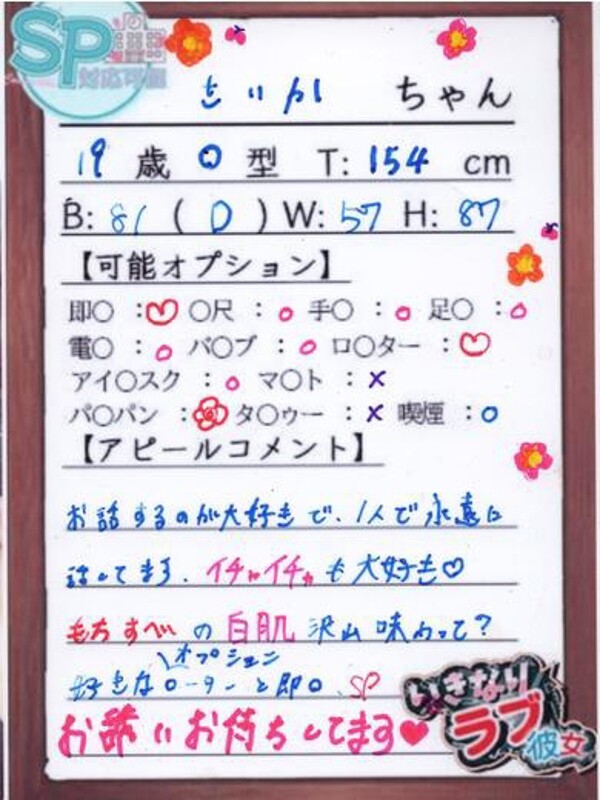 SP
対応可能
せいか ちゃん
19 歳 O 型 T: 154 cm
B: 81 ( D ) W: 57 H: 87
【可能オプション】
即〇 :♡ 〇尺 :○ 手〇 :○ 足〇 :○
電〇 :○ バ〇ブ :○ ロ〇ター:♡
アイ〇スク :○ マ〇ト :×
パ〇パン : タ〇ゥー :× 喫煙 :○
【アピールコメント】
お話するのが大好きで、1人で永遠に
話してます。イチャイチャも大好き♡
もちすべの白肌沢山味わって?
オプション
好きな○ーターと即○、SP
お誘いお待ちしてます♥
いきなり
ラブ彼女